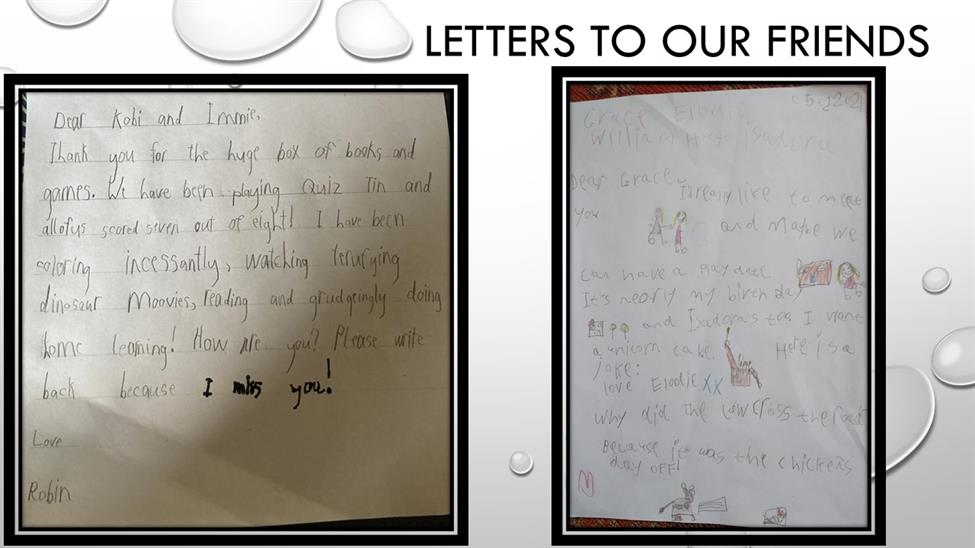 LETTERS TO OUR FRIENDS
Dear Kobi and Immie,
Thank you for the huge box of books and
games. We have been playing Quiz Tin and
allofus scored seven out of eight! I have been
coloring incessantly, watching terufying
dinosaur Moovies, reading and grudgeingly doing
home learning! How are you? Please write
back because I miss you!
Love
Robin
Grace Elodie
William Isadora
Dear Grace,
I really like to meet
you and maybe we
can have a play date.
It's nearly my birthday
and Isadora's too I want
a unicorn cake. Here is a
joke:
love Elodie xx
Why did the cow cross the road
Because it was the chickens
day OFF!